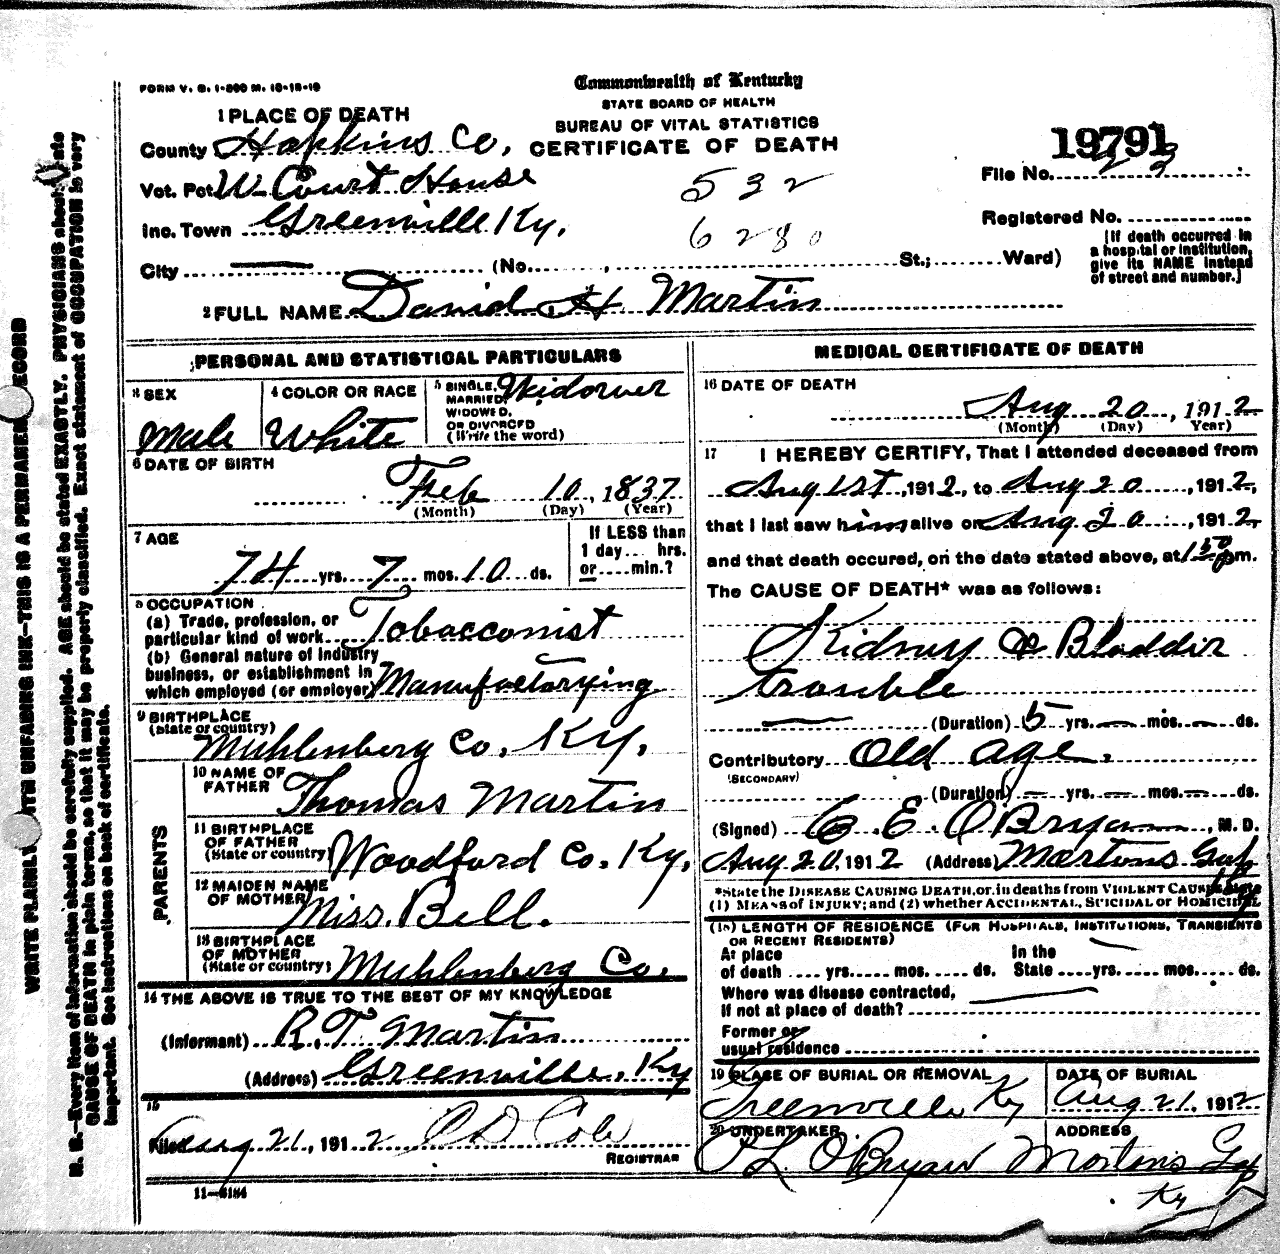 FORM V. S. 1-500 M. 10-15-10
Commonwealth of Kentucky
STATE BOARD OF HEALTH
BUREAU OF VITAL STATISTICS
CERTIFICATE OF DEATH
1 PLACE OF DEATH
County Hopkins Co,
Vot. Pct W- Court House
Inc. Town Greenville Ky,
City (No. , St.; Ward)
532
6280
19791
File No. 23
Registered No.
[If death occurred in
a hospital or institution,
give its NAME instead
of street and number.]
2 FULL NAME David H. Martin
PERSONAL AND STATISTICAL PARTICULARS
3 SEX
Male
4 COLOR OR RACE
White
5 SINGLE, MARRIED, WIDOWED, OR DIVORCED
(Write the word)
Widower
6 DATE OF BIRTH
Feb 10, 1837
(Month) (Day) (Year)
7 AGE
74 yrs. 7 mos. 10 ds.
If LESS than
1 day... hrs.
or....min.?
8 OCCUPATION
(a) Trade, profession, or
particular kind of work Tobacconist
(b) General nature of industry
business, or establishment in
which employed (or employer) Manufactorying
9 BIRTHPLACE
(State or country)
Muhlenberg Co. Ky.
PARENTS
10 NAME OF FATHER
Thomas Martin
11 BIRTHPLACE OF FATHER
(State or country)
Woodford Co. Ky,
12 MAIDEN NAME OF MOTHER
Miss. Bell.
13 BIRTHPLACE OF MOTHER
(State or country)
Muhlenberg Co.
14 THE ABOVE IS TRUE TO THE BEST OF MY KNOWLEDGE
(Informant) R. T. Martin
(Address) Greenville, Ky
15
Filed Aug 21, 1912 C D Cole
REGISTRAR
11-5184
MEDICAL CERTIFICATE OF DEATH
16 DATE OF DEATH
Aug 20, 1912
(Month) (Day) (Year)
17 I HEREBY CERTIFY, That I attended deceased from
Aug 1st, 1912, to Aug 20, 1912,
that I last saw him alive on Aug 20, 1912,
and that death occured, on the date stated above, at 1 50 p m.
The CAUSE OF DEATH* was as follows:
Kidney & Bladdir
trouble
(Duration) 5 yrs. — mos. — ds.
Contributory Old age.
(SECONDARY)
(Duration) — yrs. — mos. — ds.
(Signed) C. E. O'Bryan, M. D.
Aug 20, 1912 (Address) Mortons Gap
Ky
*State the DISEASE CAUSING DEATH, or, in deaths from VIOLENT CAUSES, state
(1) MEANS of INJURY; and (2) whether ACCIDENTAL, SUICIDAL or HOMICIDAL
(18) LENGTH OF RESIDENCE (FOR HOSPITALS, INSTITUTIONS, TRANSIENTS
OR RECENT RESIDENTS)
At place of death .... yrs. .... mos. .... ds. In the State .... yrs. .... mos. .... ds.
Where was disease contracted,
If not at place of death?
Former or
usual residence
19 PLACE OF BURIAL OR REMOVAL
Greenville Ky
DATE OF BURIAL
Aug 21. 1912
20 UNDERTAKER
P L O'Bryan
ADDRESS
Mortons Gap
Ky
N. B.—Every item of information should be carefully supplied. AGE should be stated EXACTLY. PHYSICIANS should state
CAUSE OF DEATH in plain terms, so that it may be properly classified. Exact statement of OCCUPATION is very
important. See instructions on back of certificate.
WRITE PLAINLY WITH UNFADING INK—THIS IS A PERMANENT RECORD